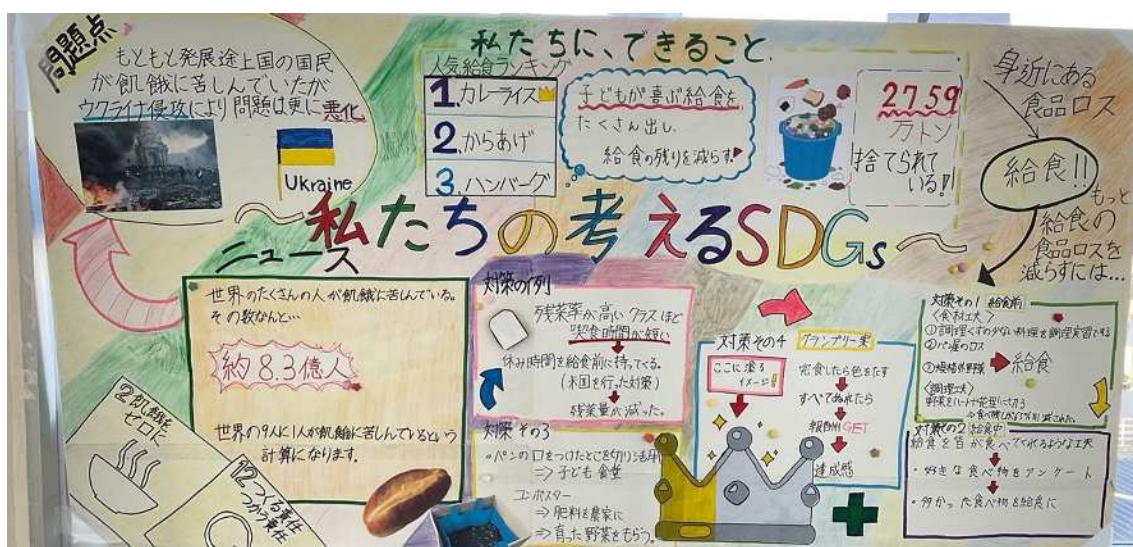 問題点
もともと発展途上国の国民
が飢餓に苦しんでいたが
ウクライナ侵攻により問題は更に悪化
Ukraine
私たちに、できること
人気給食ランキング
1.カレーライス
2.からあげ
3.ハンバーグ
子どもが喜ぶ給食を
たくさん出し、
給食の残りを減らす。
2759
万トン
捨てられて
いる!!
身近にある
食品ロス
給食!!
もっと
給食の
食品ロスを
減らすには…
～私たちの考えるSDGs～
ニュース
世界のたくさんの人が飢餓に苦しんでいる。
その数なんと…
約8.3億人
世界の9人に1人が飢餓に苦しんでいるという
計算になります。
2 飢餓を
ゼロに
12 つくる責任
つかう責任
対策の例
残菜率が高いクラスほど
喫食時間が短い
休み時間を給食前に持ってくる。
(米国を行った対策)
残菜量が減った。
対策 その3
・パンの口をつけたとこを切り活用
⇒子ども食堂
コンポスター
⇒肥料を農家に
⇒育った野菜をもらう。
対策その4 グランプリー案
ここに塗る
イメージ!
完食したら色をたす
すべてぬれたら
報酬GET
達成感
対策その1 給食前
〈食材工夫〉
①調理くずの少ない料理を調理実習で作る
②パン屋のロス
③規格外野菜
給食
〈調理工夫〉
対策その2 給食中
給食を皆が食べてくれるような工夫
・好きな食べ物をアンケート
・多かった食べ物を給食に